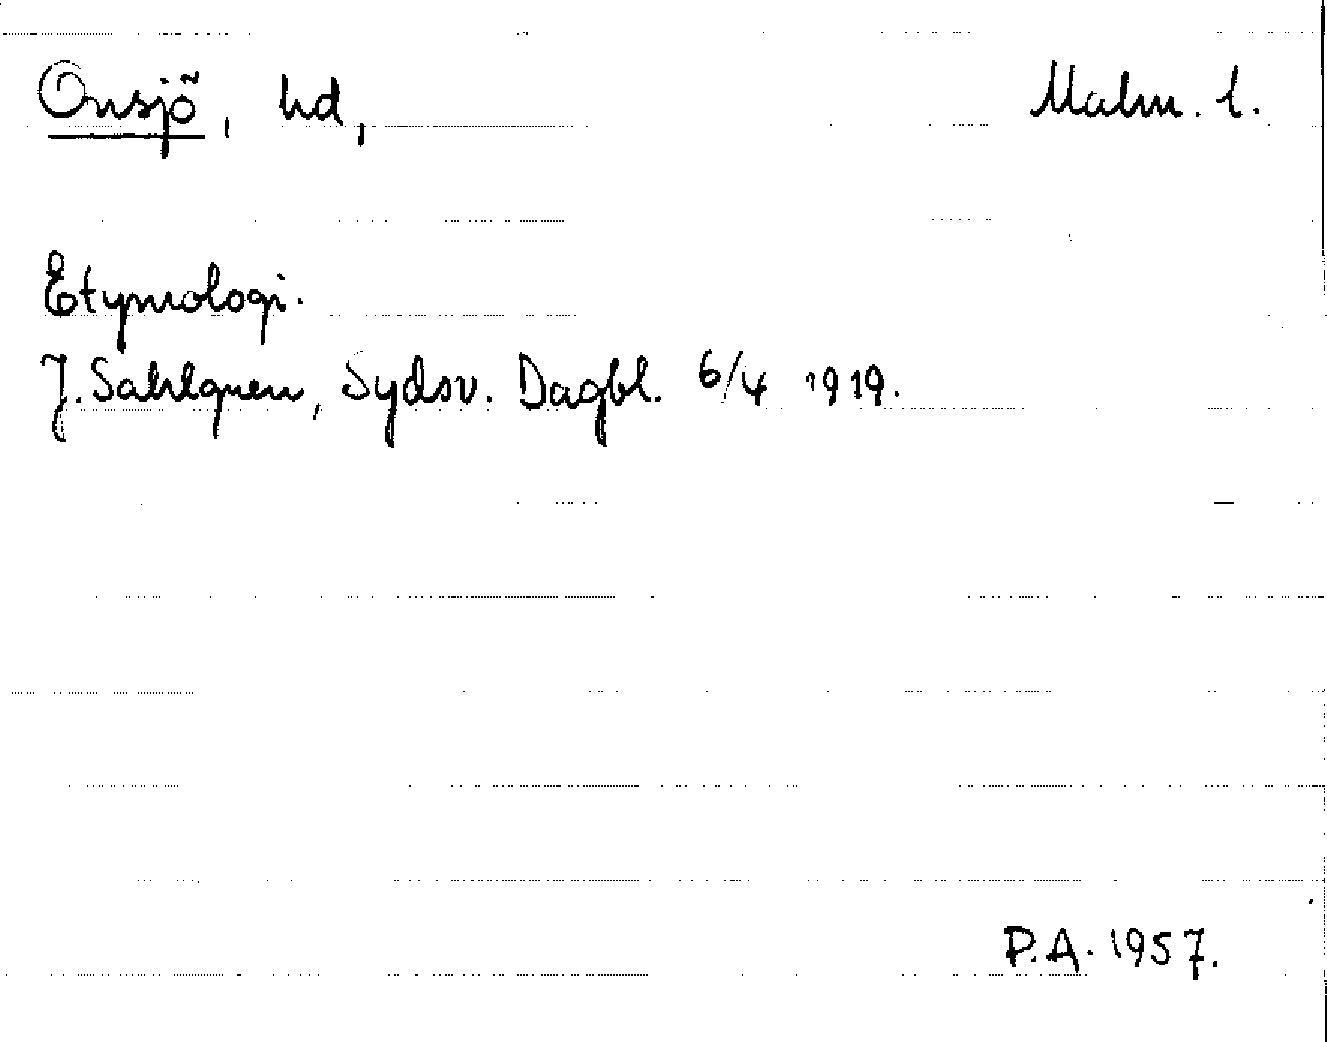 Onsjö, hd, Malm. l.
Etymologi.
J. Sahlgren, Sydsv. Dagbl. 6/4 1919.
P.A. 1957.